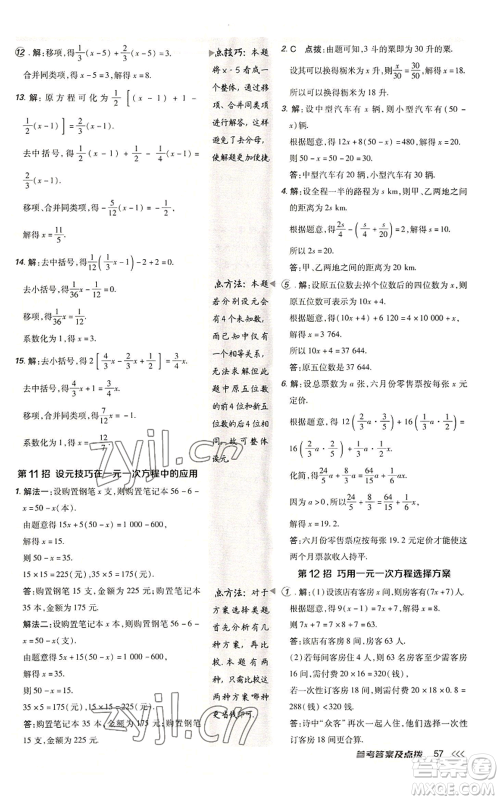 ⑫. 解:移项,得1/3(x-5)+2/3(x-5)=3.
合并同类项,得x-5=3,解得x=8.
13. 解:原方程可化为1/2[(x-1)+1-
1/2(x-1)]=2/3(x-1).
去中括号,得1/2(x-1)+1/2-1/4(x-1)=
2/3(x-1).
移项、合并同类项,得-5/12(x-1)=-1/2.
解得x=11/5.
14. 解:去中括号,得1/12(1/3x-1)-2=0.
去小括号,得1/36x-1/12-2=0.
移项、合并同类项,得1/36x=25/12.
系数化为1,得x=75.
15. 解:去小括号,得2[4/3x-2/3x+1/2]=3/4x.
去中括号,得8/3x-4/3x+1=3/4x.
移项、合并同类项,得7/12x=-1.
系数化为1,得x=-12/7.
第11招 设元技巧在一元一次方程中的应用
1. 解法一:设购置钢笔x支,则购置笔记本56-6
-x=50-x(本).
由题意得15x+5(50-x)=400.
解得x=15.
则50-x=35.
15×15=225(元),35×5=175(元).
答:购置钢笔15支,金额为225元;购置笔记本
35本,金额为175元.
解法二:设购置笔记本x本,则购置钢笔56-6
-x=50-x(支).
由题意得15(50-x)+5x=400.
解得x=35.
则50-x=15.
15×15=225(元),35×5=175(元).
答:购置钢笔15支,金额为225元;购置笔记本
35本,金额为175元.
点技巧:本题
将x-5看作一
个整体,通过
移项、合并同类项
进行解答,这样
避免了去分母,
使解题更加便捷.
点方法:本题
若分别设元会
有4个未知数,
而已知中仅有
一个相等关系,
无法求解.但此
题中原五位数
的前4位和新五
位数的后4位相
同,故可整体
设元.
点方法:对于
方案选择类题
目,首先弄清有
几种方案,本
题有两种方案,
再分别求出
这两种方案
更省钱即可.
2. C 点拨:由题可知,3斗的粟即为30升的粟.
设可以换得粝米为x升,则x/30=30/50,解得x=18.
3. 解:设中型汽车有x辆,则小型汽车有(50-
x)辆.
根据题意,得12x+8(50-x)=480.解得x=20.
则50-x=50-20=30.
答:中型汽车有20辆,小型汽车有30辆.
4. 解:设全程一半的路程为s km,则甲、乙两地之
间的距离为2s km.
根据题意,得2s/4-(s/4+s/20)=2.解得s=10.
所以2s=20.
答:甲、乙两地之间的距离为20 km.
⑤. 解:设原五位数去掉个位数后的四位数为x,则
原五位数可表示为10x+4.
根据题意,得40 000+x=10x+4+6 120.
解得x=3 764.
所以10x+4=37 644.
答:原五位数为37 644.
6. 解:设总票数为a张,六月份零售票应按每张x
元定价.
根据题意,得12×2/3a·3/5+16×1/3a·1/2=
12×2/3a·2/5+1/3a·1/2x.
化简,得1/6ax=48/15a.
因为a>0,所以1/6x=48/15.解得x=19.2.
答:六月份零售票应按每张19.2元定价才能使这
两个月票款收入持平.
第12招 巧用一元一次方程选择方案
①. 解:(1)设该店有客房x间,则房客有(7x+7)人.
根据题意,得9(x-1)=7x+7.解得x=8.
则7x+7=7×8+7=63.
答:该店有客房8间,房客有63人.
(2)若每间客房住4人,则63名客人至少需客
房16间,需付费20×16=320(钱);
若一次性定客房18间,则需付费20×18×0.8=
288(钱).
因为288<320,
所以诗中“众客”再次一起入住,选择一次性订
房18间更合算.
参考答案及点拨 57
zyjl.cn
zyjl.cn